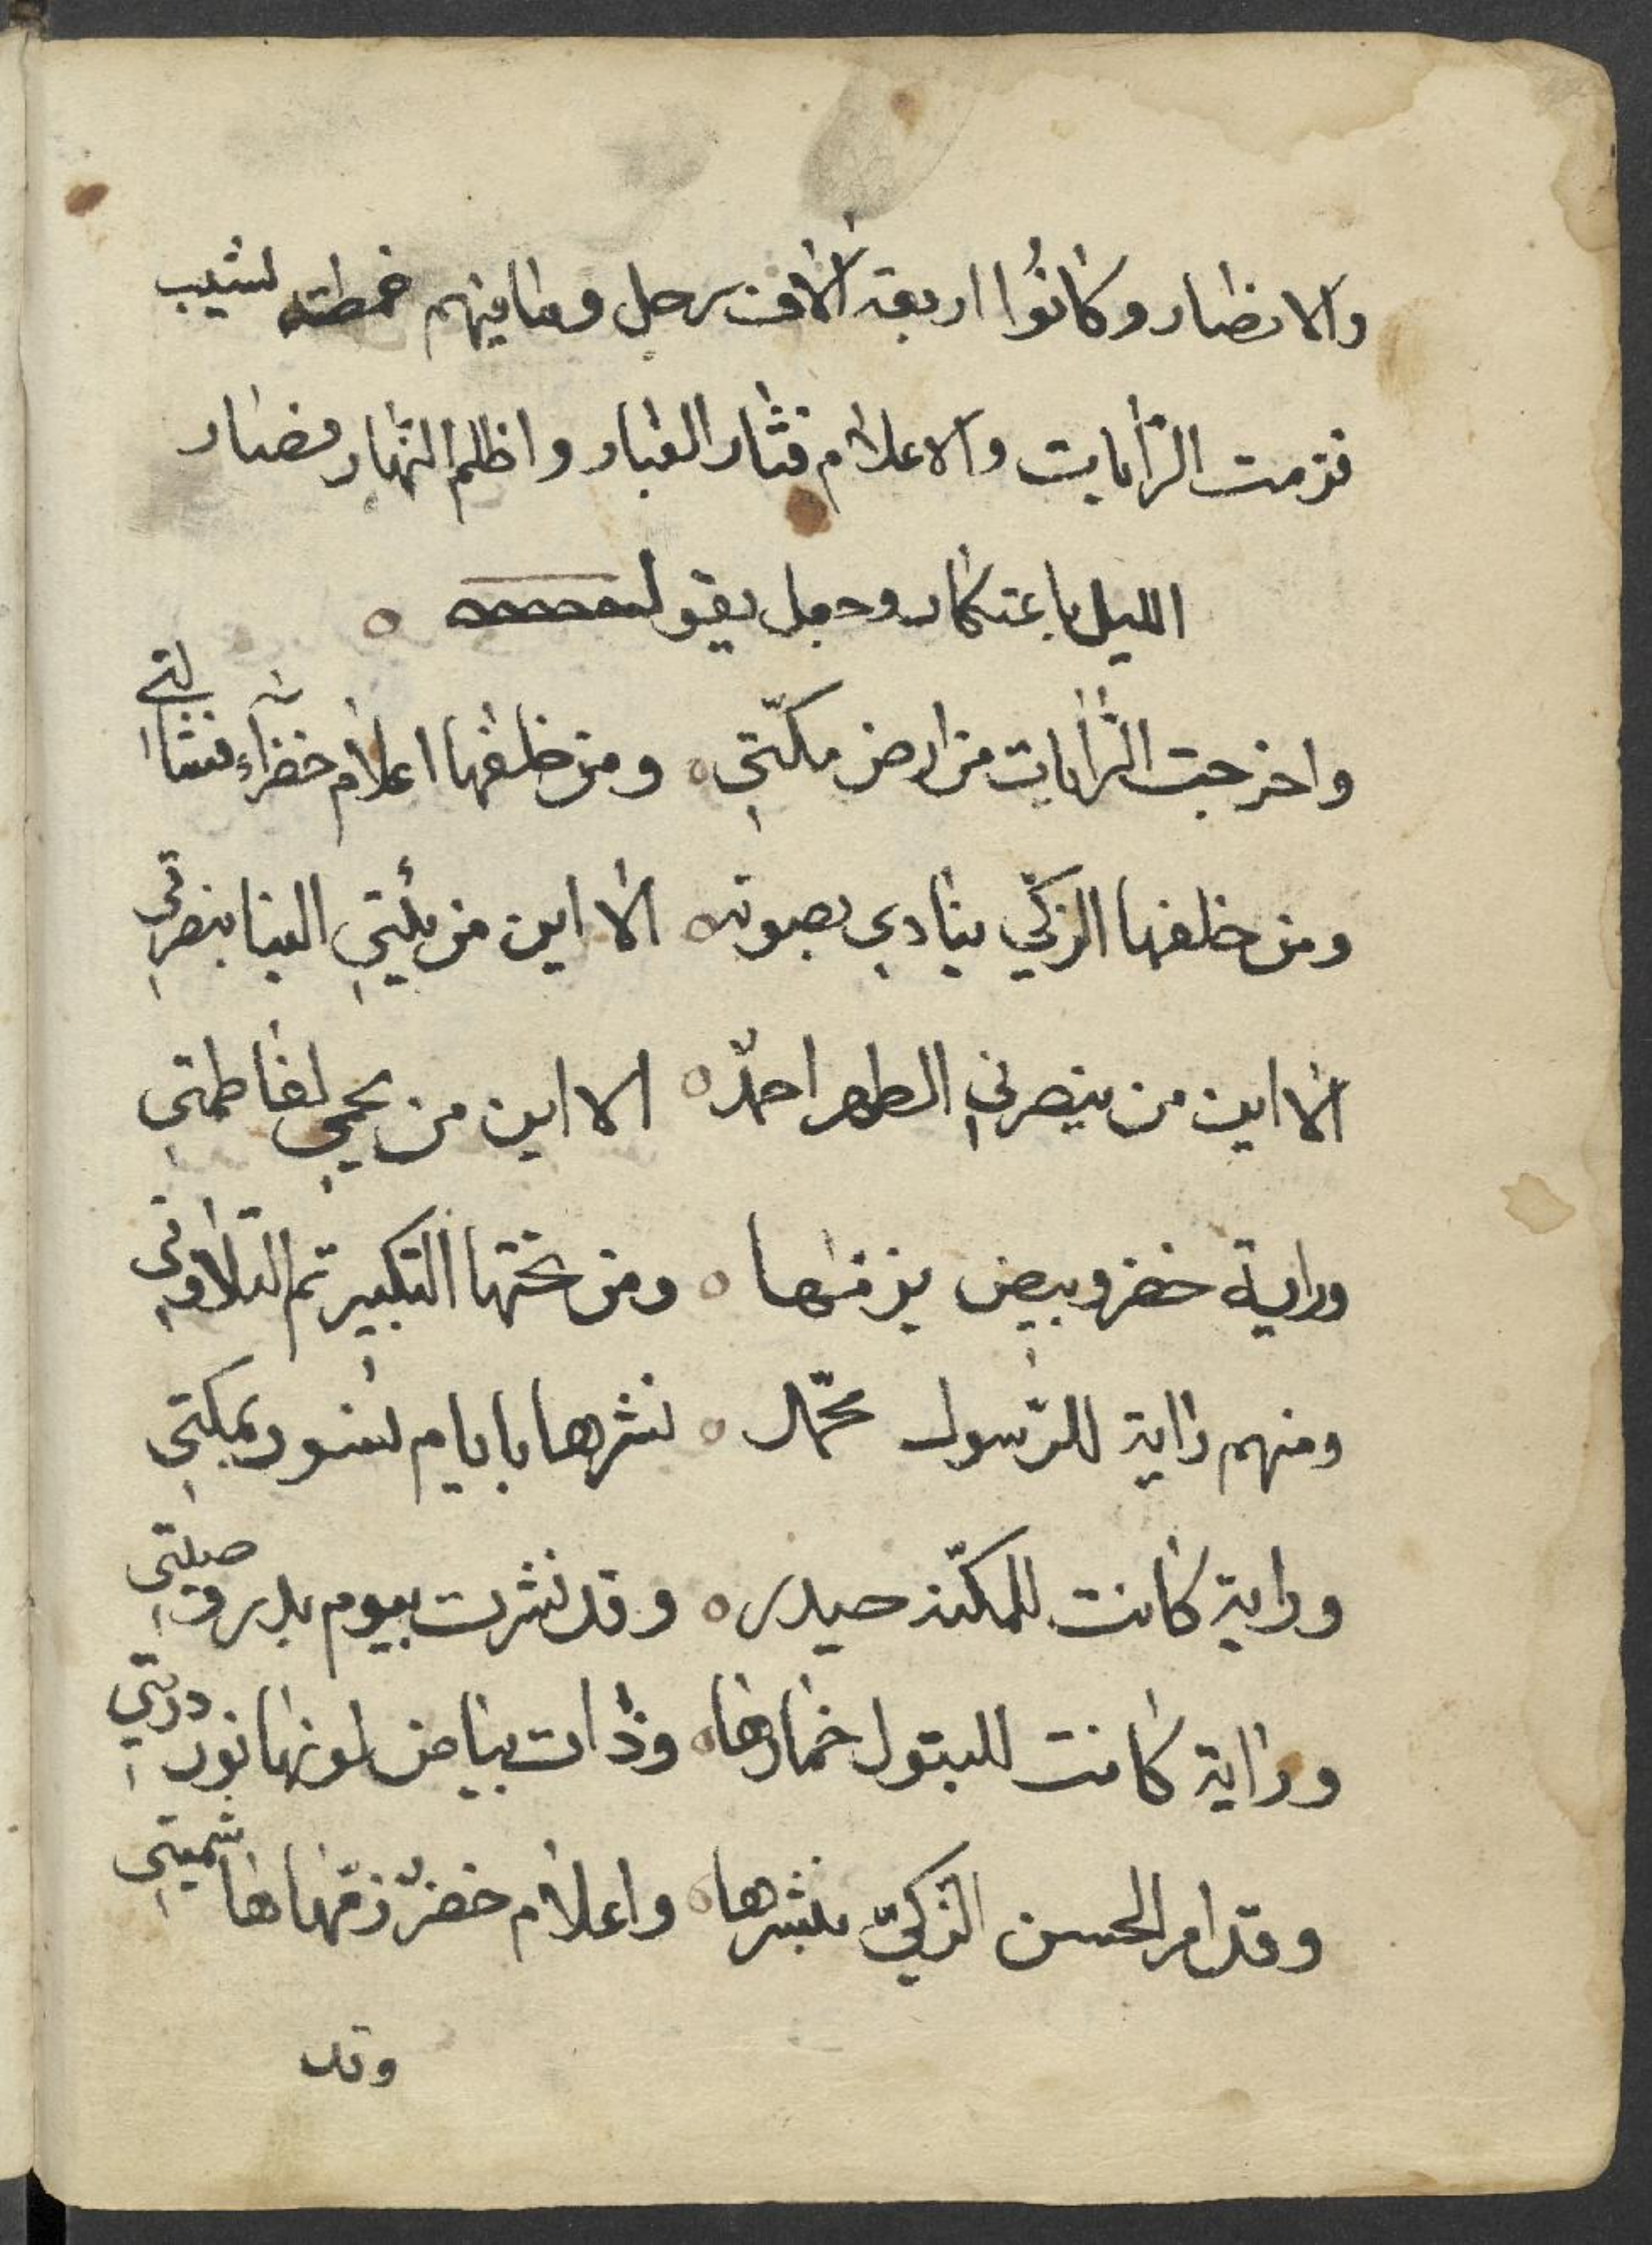 والانصار وكانوا اربعة الاف رجل وما فيهم خمطته لشيب
فزمت الرايات والاعلام فثار الغبار واظلم النهار فصار
الليل باعتكار وجعل يقول
واخرجت الرايات من ارض مكتي ٥ ومن خلفها اعلام خضراء
ومن خلفها الزكي ينادي بصوته ٥ الا اين من يأتي الينا بنصرتي
الا اين من ينصرني الطهر احمد ٥ الا اين من يحمي لفاطمتي
وراية خضر وبيض يزفها ٥ ومن تحتها التكبير ثم التلاوتي
ومنهم راية للرسول محمد ٥ نشرها بايام بمكتي
وراية كانت للمكنة حيدر ٥ وقد نشرت بيوم بدر وصيلتي
وراية كانت للبتول خمارها ٥ وذات بياض لونها نور درتي
وقد امر الحسن الزكي بنشرها ٥ واعلام خضر زفها هاشميتي
وقد